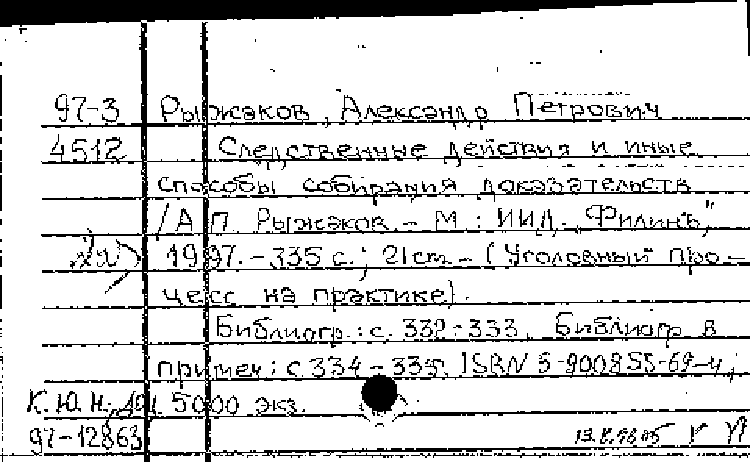 97-3 Рыжаков, Александр Петрович
4512 Следственные действия и иные
способы собирания доказательств
/ А П Рыжаков. - М : ИИД „Филинъ",
1997. - 335 с. ; 21 cm - (Уголовный про-
цесс на практике).
Библиогр.: с. 332-333. Библиогр в
примеч: с 334 - 335. ISBN 5-900855-69-4 ;
К.Ю.Н. 5000 экз.
97-12863